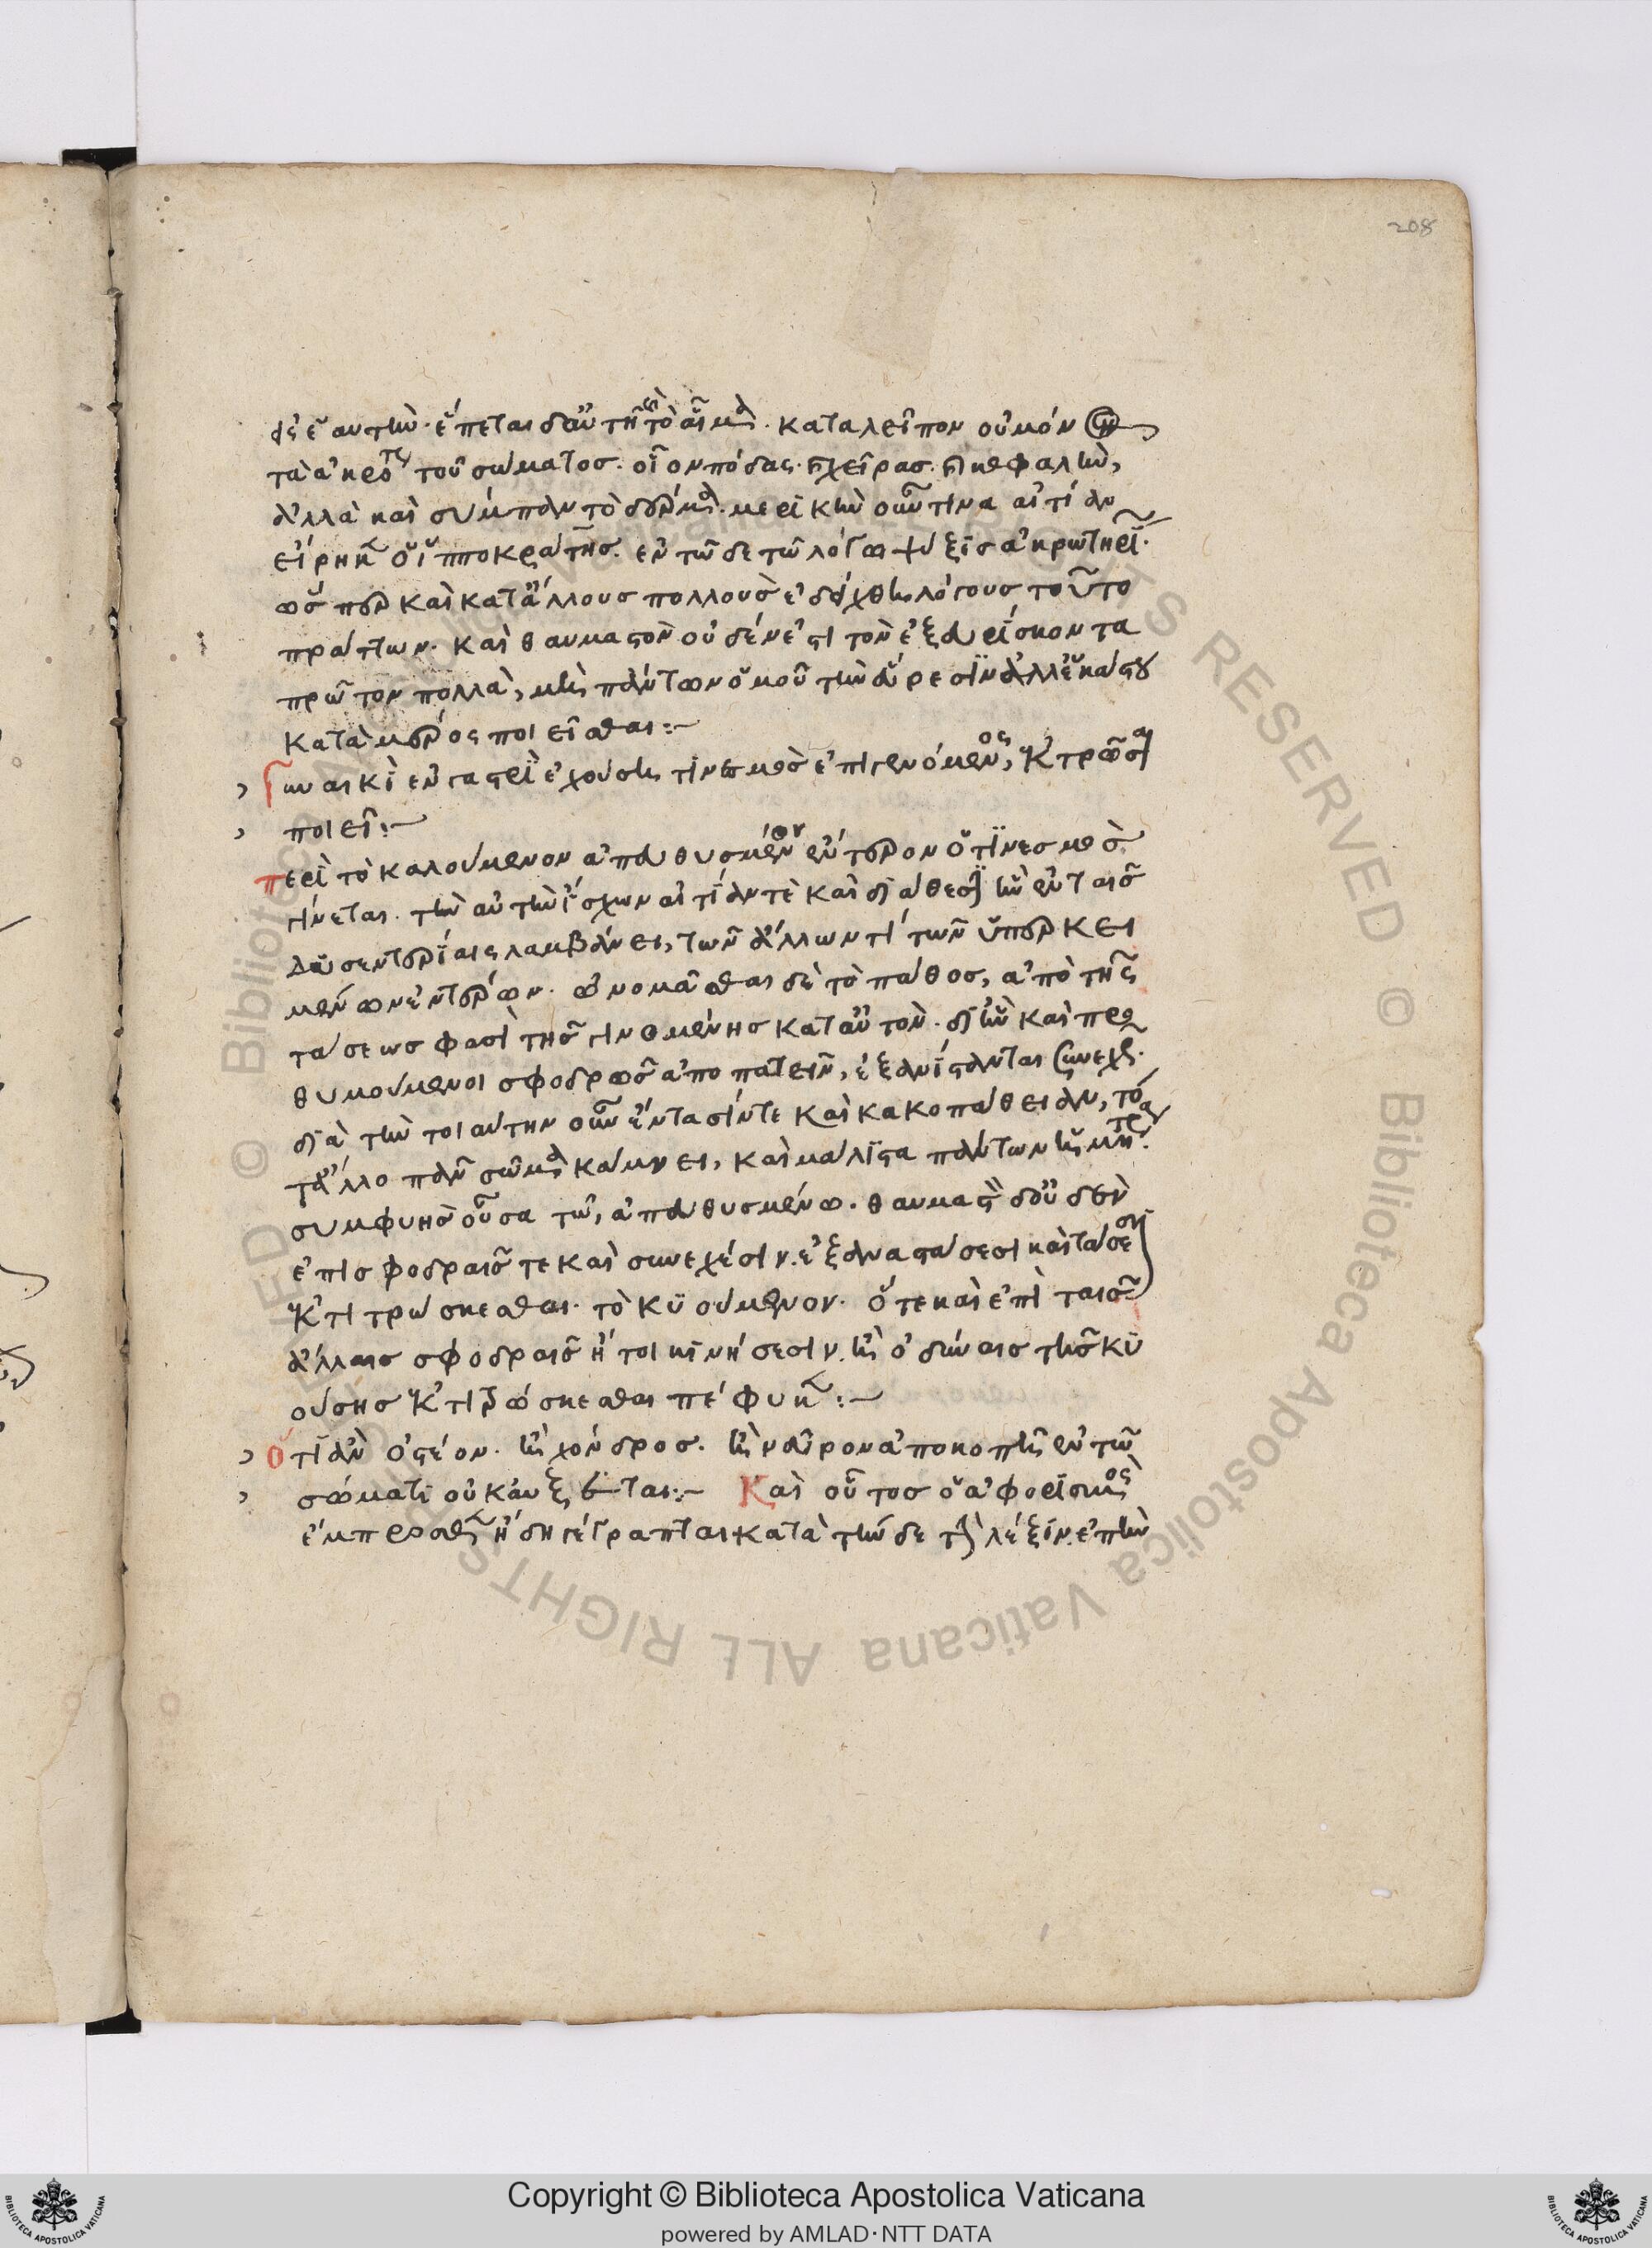 208
εἰς ἑαυτὴν. ἕπεται δ' αὐτῇ καὶ τὸ αἷμα. καταλεῖπον οὐ μόνον
τὰ ἀκρότατα τοῦ σώματος. οἷον πόδας. καὶ χεῖρας. καὶ κεφαλὴν,
ἀλλὰ καὶ σύμπαν τὸ δέρμα. μερικὴν οὖν τινα αἰτίαν
εἴρηκεν ὁ ἱπποκράτης. ἐν τῷδε τῷ λόγῳ ψύξις ἀκρωτηρί.
ὥσπερ καὶ κατ' ἄλλους πολλοὺς ἐδείχθη λόγους τοῦτο
πράττων. καὶ θαυμαστὸν οὐδέν ἐστι τὸν ἐξευρίσκοντα
πρῶτον πολλὰ, μὴ πάντων ὁμοῦ τὴν εὕρεσιν ἀλλ' ἑκάστου
κατὰ μέρος ποιεῖσθαι:~
Γυναικὶ ἐν γαστρὶ ἐχούσῃ τινεσμὸς ἐπιγενόμενος, ἐκτρῶσαι
ποιεῖ:~
περὶ τὸ καλούμενον ἀπευθυσμένον ἔντερον ὁ τινεσμὸς
γίνεται. τὴν αὐτὴν ἴσχων αἰτίαν τὲ καὶ διάθεσιν ἣν ἐν ταῖς
δυσεντερίαις λαμβάνει, τῶν ἄλλων τί τῶν ὑπερκει
μένων ἐντέρων. ὠνομᾶσθαι δὲ τὸ πάθος, ἀπὸ τῆς
τάσεως φασὶ τῆς γινομένης κατ' αὐτὸν. δι' ἣν καὶ προ
θυμούμενοι σφοδρῶς ἀποπατεῖν, ἐξανίστανται συνεχῶς.
διὰ τὴν τοιαύτην οὖν ἔντασίν τε καὶ κακοπάθειαν, τό
τ' ἄλλο πᾶν σῶμα κάμνει, καὶ μάλιστα πάντων ἡ μήτρα.
συμφυὴς οὖσα τῷ, ἀπευθυσμένῳ. θαυμαστὸν δ' οὐδὲν
ἐπὶ σφοδραῖς τε καὶ συνεχέσιν. ἐξαναστάσεσι καὶ τάσεσιν
ἐκτιτρώσκεσθαι. τὸ κυούμενον. ὅτε καὶ ἐπὶ ταῖς
ἄλλαις σφοδραῖς ἤτοι κινήσεσιν. ἢ ὀδύναις τῆς κυ
ούσης ἐκτιτρώσκεσθαι πέφυκεν:~
Ὅτι ἂν ὀστέον. ἢ χόνδρος. ἢ νεῦρον ἀποκοπῇ ἐν τῷ
σώματι οὐκ αὔξεται:~ Καὶ οὗτος ὁ ἀφορισμὸς
ἔμπροσθεν ἤδη γέγραπται κατὰ τήνδε τὴν λέξιν. ἐπὴν
Copyright © Biblioteca Apostolica Vaticana
powered by AMLAD·NTT DATA